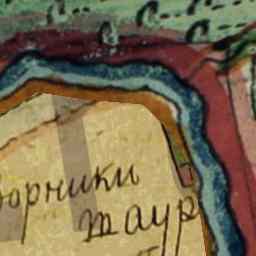 ворники
таур